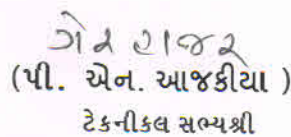 ગેર હાજર
(પી. એન. આજકીયા )
ટેકનીકલ સભ્યશ્રી